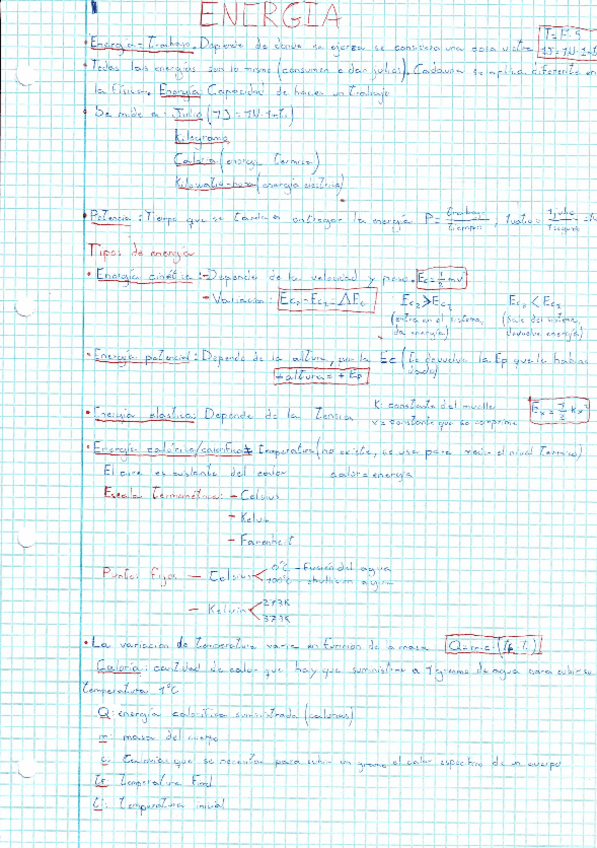 ENERGIA
• Energía = trabajo. Depende de donde se ejerza se considera una cosa u otra T=F·s
1J=1N·1mt
• Todas las energías son lo mismo (consumen o dan julios). Cada una se aplica diferente en
la física. Energía Capacidad de hacer un trabajo
• Se mide a: Julio (1J=1N·1mt)
Kilogramo
Caloría (energía termica)
Kilowatio-hora (energía electrica).
• Potencia: Tiempo que se tarda a entregar la energía P= trabajo/tiempo, 1watio = 1julio/1segundo
Tipos de energía
• Energía cinética: - Depende de la velocidad y peso. Ec=½mv²
- Variacion: Ec₂-Ec₁=ΔEc Ec₂>Ec₁ Ec₂<Ec₁
(entra en el sistema, (Sale del sistema,
da energía) devuelve energía)
• Energía potencial: Depende de la altura, por la Ec (Te devuelve la Ep que le habías
dado)
+altura=+Ep
• Energía elastica: Depende de la K constante del muelle Ex=½Kx²
x=constante que se comprime
• Energía calórica/calorifica Temperatura (no existe, se usa para el nivel termico)
El aire es aislante del calor calor=energía
Escala termométrica: - Celsius
- Kelvin
- Farenheit
Puntos fijos - Celsius 0°C - Fusión del agua
100°C ebullicion agua
- Kelvin 273K
373K
• La variacion de temperatura varia en funcion de la masa Q=m·c·(tf-ti)
Caloría: cantidad de calor que hay que suministrar a 1 gramo de agua para subir su
temperatura 1°C
Q: energía calorifica suministrada (calorias)
m: masa del cuerpo
c: Calorías que se necesitan para subir un gramo el calor especifico de un cuerpo
tf: temperatura Final
ti: temperatura inicial